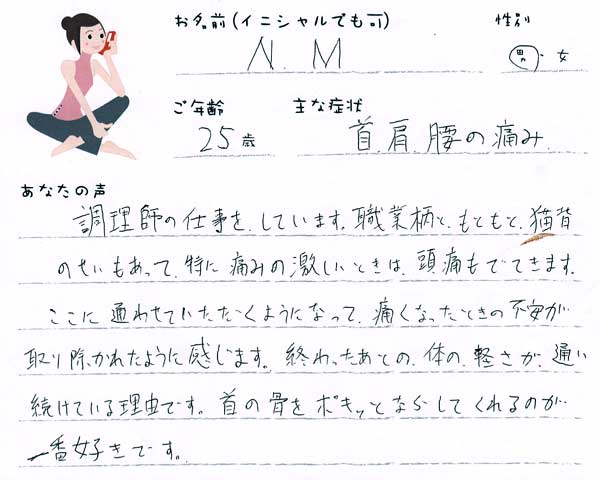 お名前(イニシャルでも可)
N. M
性別
男・女
ご年齢
25歳
主な症状
首.肩.腰の痛み.
あなたの声
調理師の仕事を.しています。職業柄と.もともと.猫背
のせいもあって.特に痛みの激しいときは.頭痛もでてきます.
ここに通わせていただくようになって.痛くなったときの不安が
取り除かれたように感じます。終わったあとの.体の.軽さが.通い
続けている理由です。首の骨をボキッとならしてくれるのが
一番好きです。